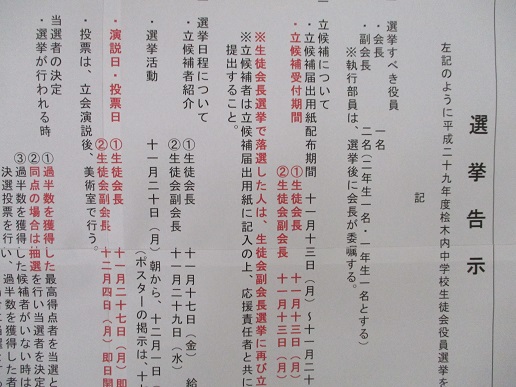 選挙告示
左記のように平成二十九年度桧木内中学校生徒会役員選挙を
記
・選挙すべき役員
・会長 一名
・副会長 二名(二年生一名・一年生一名とする)
※執行部員は、選挙後に会長が委嘱する。
・立候補について
・立候補届出用紙配布期間 十一月十三日(月)~十一月二十
・立候補受付期間 ①生徒会長 十一月十三日(月)
②生徒会副会長 十一月十三日(月)
※生徒会長選挙で落選した人は、生徒会副会長選挙に再び立
※立候補者は立候補届出用紙に記入の上、応援責任者と共に
提出すること。
・選挙日程について
・立候補者紹介 ①生徒会長 十一月十七日(金) 給
②生徒会副会長 十一月二十九日(水)
・選挙活動 十一月二十日(月)朝から、十二月一日(
(ポスターの掲示は、十
・演説日・投票日 ①生徒会長 十一月二十七日(月)即
②生徒会副会長 十二月四日(月)即日開
・投票は、立会演説後、美術室で行う。
当選者の決定
・選挙が行われる時 ①過半数を獲得した最高得点者を当選と
②同点の場合は抽選を行い当選者を決定
③過半数を獲得した候補者がいない時は
決選投票を行い、過半数を獲得した者